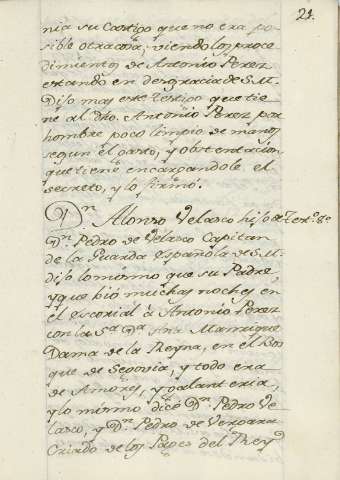 21.
nia su Castigo que no era po-
sible otra cosa, viendo los proce
dimientos de Antonio Perez
estando en desgracia de S. M.
Dijo mas este testigo que tie
ne al dho. Antonio Perez por
hombre poco limpio de manos
segun el gasto, y obstentacion
que tiene encargandole el
secreto, y lo firmó.
Dn. Alonso Velasco hijo de Text.o 8.o
Dn. Pedro de Velasco Capitan
de la Guarda española de S. M.
dijo lo mismo que su Padre,
y que bió muchas noches en
el escorial à Antonio Perez
con la Sa. Da. Manrrique
Dama de la Reyna, en el Bos
que de Segovia, y todo era
de Amores, y galanteria,
y lo mismo dice Dn. Pedro Ve
lasco, y Dn. Pedro de Vergara
Criado de los Pages del Rey